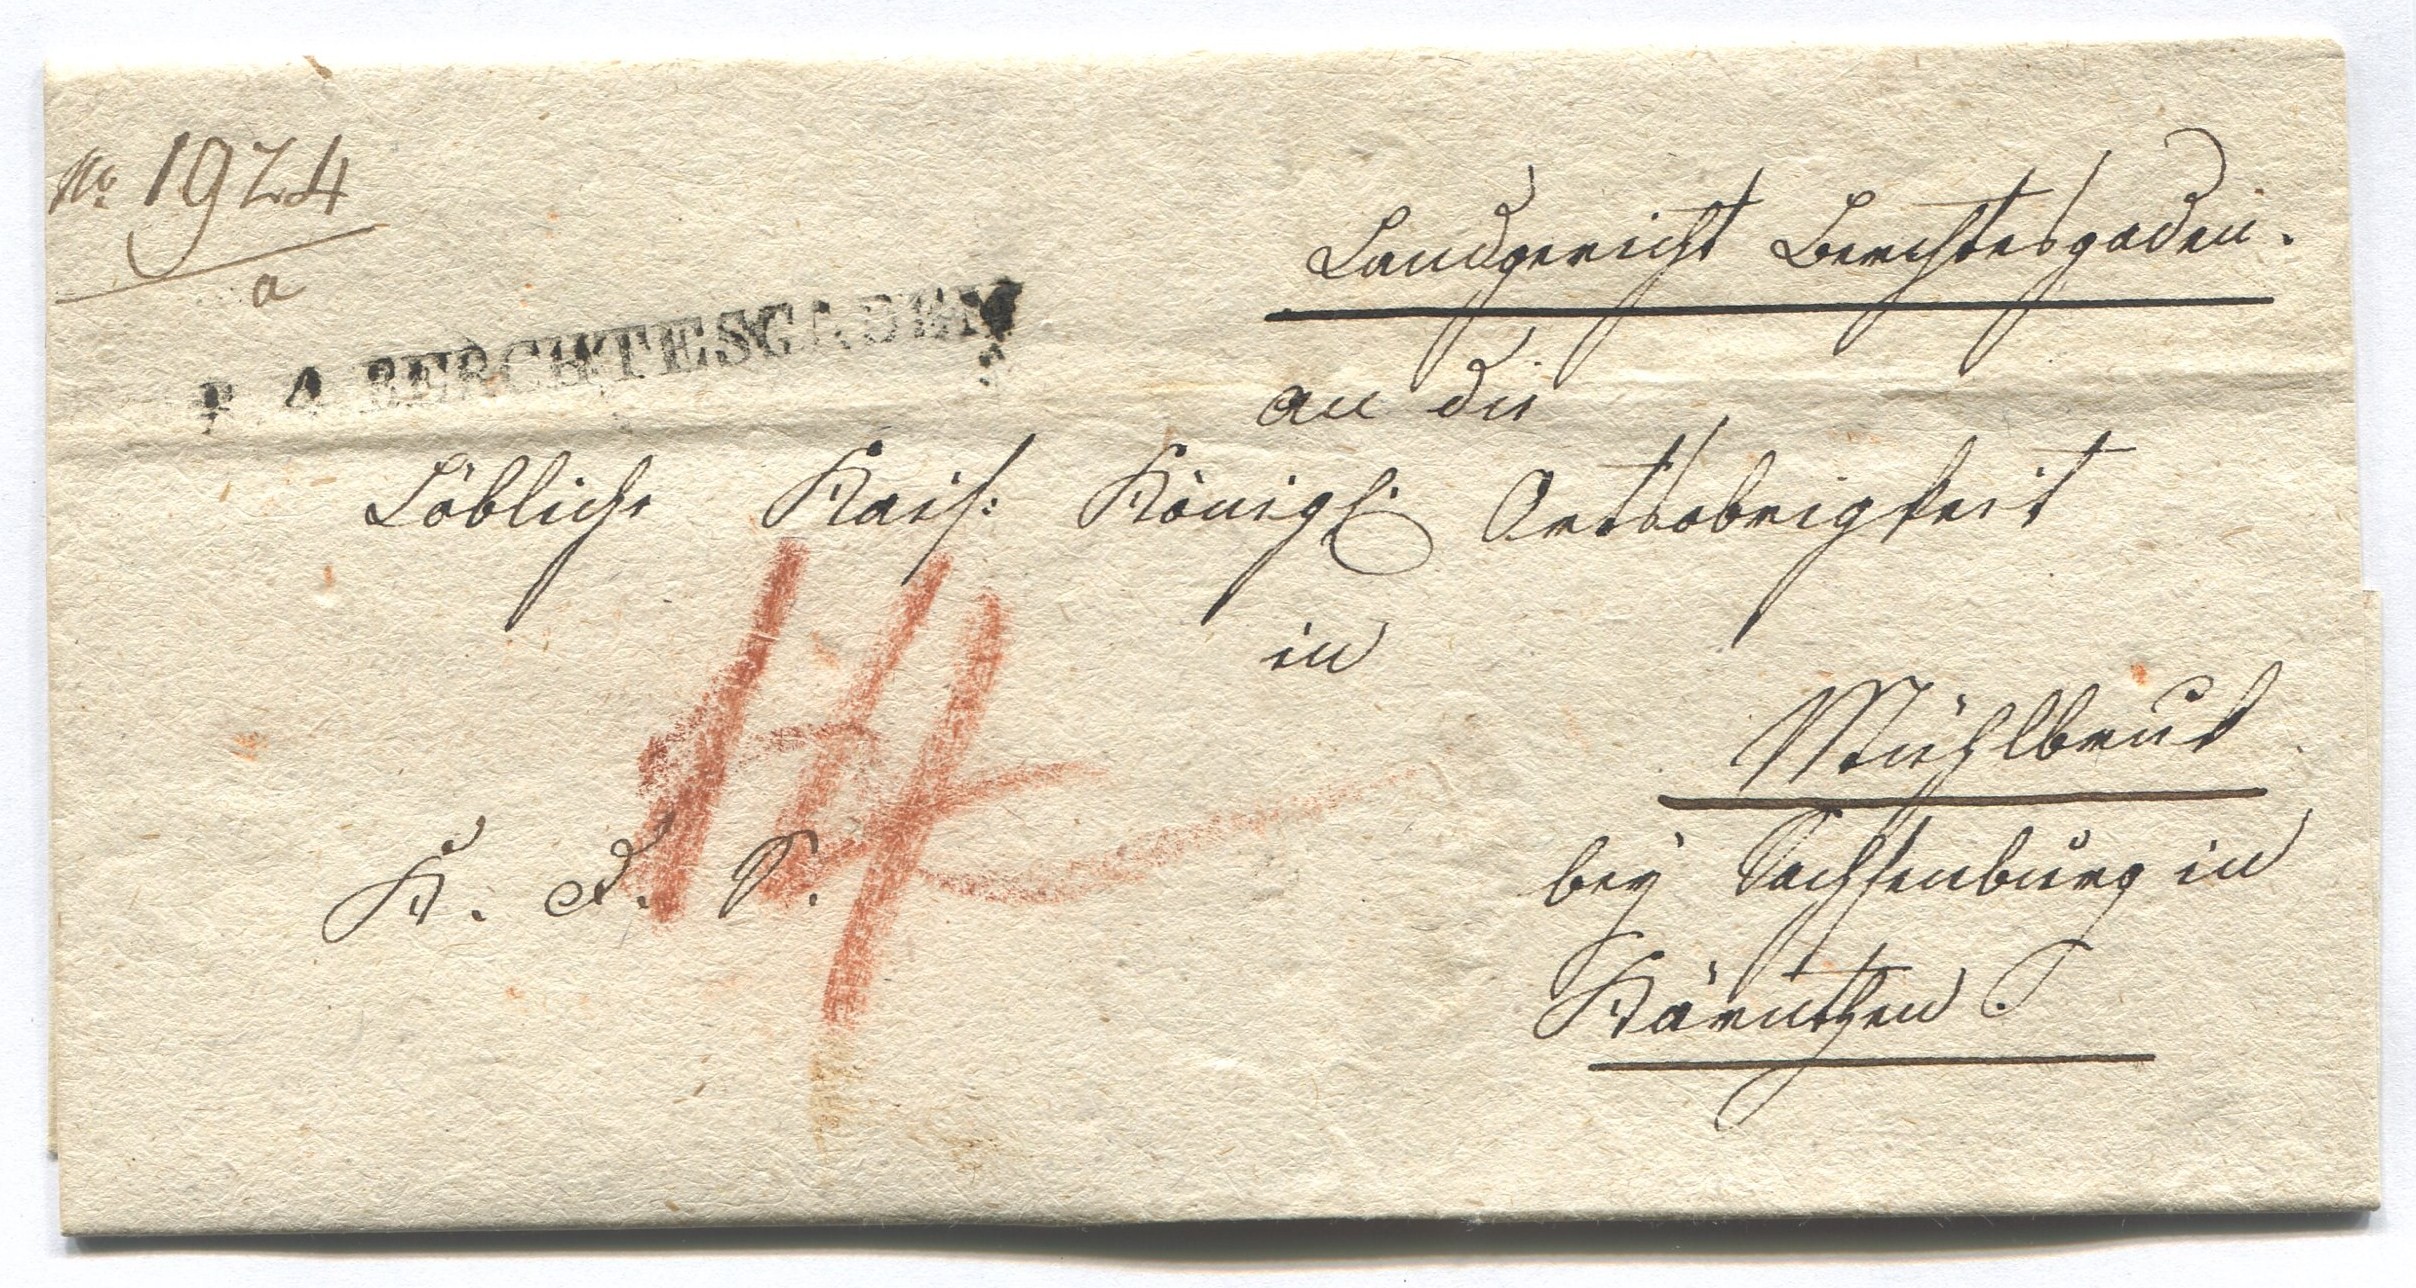 No. 1924
a
Landgericht Berchtesgaden.
R. 4. BERCHTESGADEN
an die
Löbliche Kais: Königl. Ortsobrigkeit
in
14
bey Sachsenburg in
K. D. S.
Kärnthen.